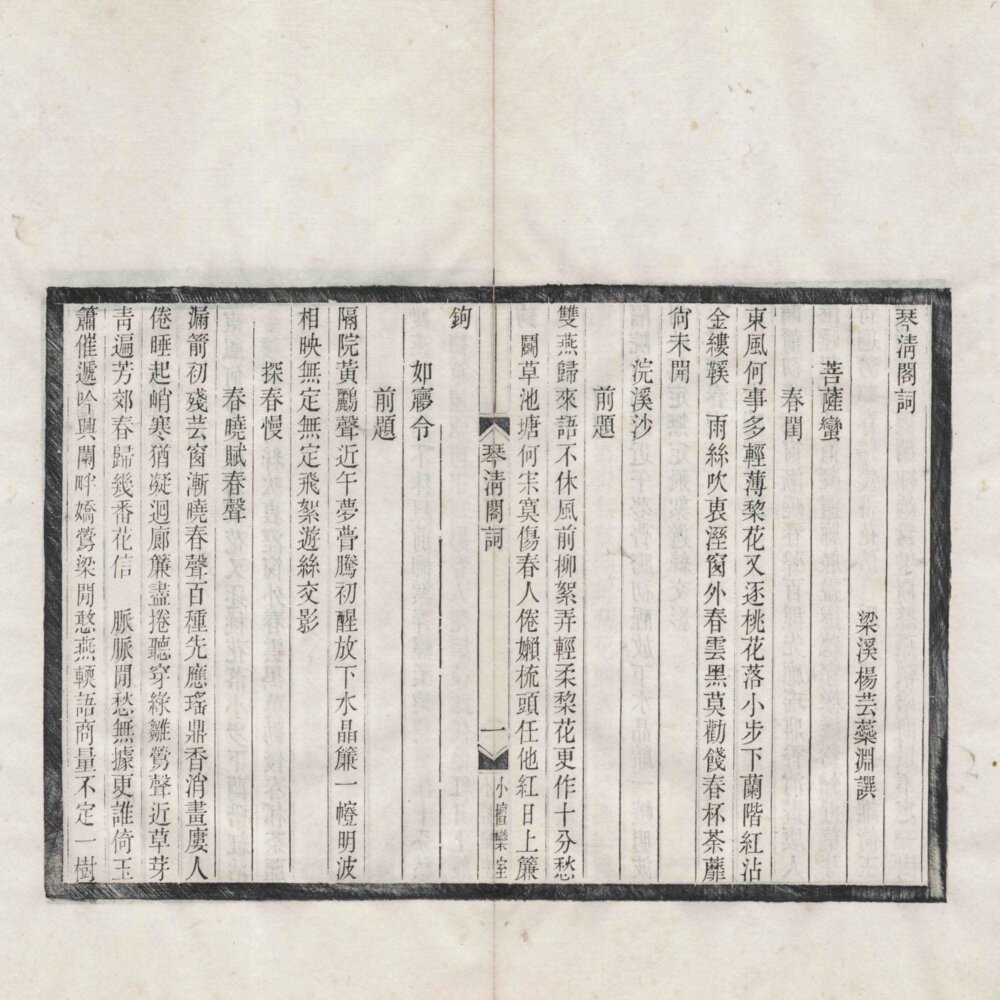 琴清閣詞
梁溪楊芸蘂淵譔
菩薩蠻
春閨
東風何事多輕薄棃花又逐桃花落小步下蘭階紅沾
金縷鞵　雨絲吹裛溼窗外春雲黑莫勸餞春杯荼蘼
尙未開
浣溪沙
前題
雙燕歸來語不休風前柳絮弄輕柔棃花更作十分愁
鬭草池塘何宋寞傷春人倦嬾梳頭任他紅日上簾
鉤
琴清閣詞
一
小檀欒室
如㝱令
前題
隔院黃鸝聲近午夢瞢騰初醒放下水晶簾一㡠明波
相映無定無定飛絮遊絲交影
探春慢
春曉賦春聲
漏箭初殘芸窗漸曉春聲百種先應瑤鼎香消畫廔人
倦睡起峭寒猶凝迴廊簾盡捲聽穿綠雛鶯聲近草芽
靑遍芳郊春歸幾番花信　脈脈閒愁無據更誰倚玉
簫催遞吟興闌畔嬌鶯梁閒憨燕輭語商量不定一樹